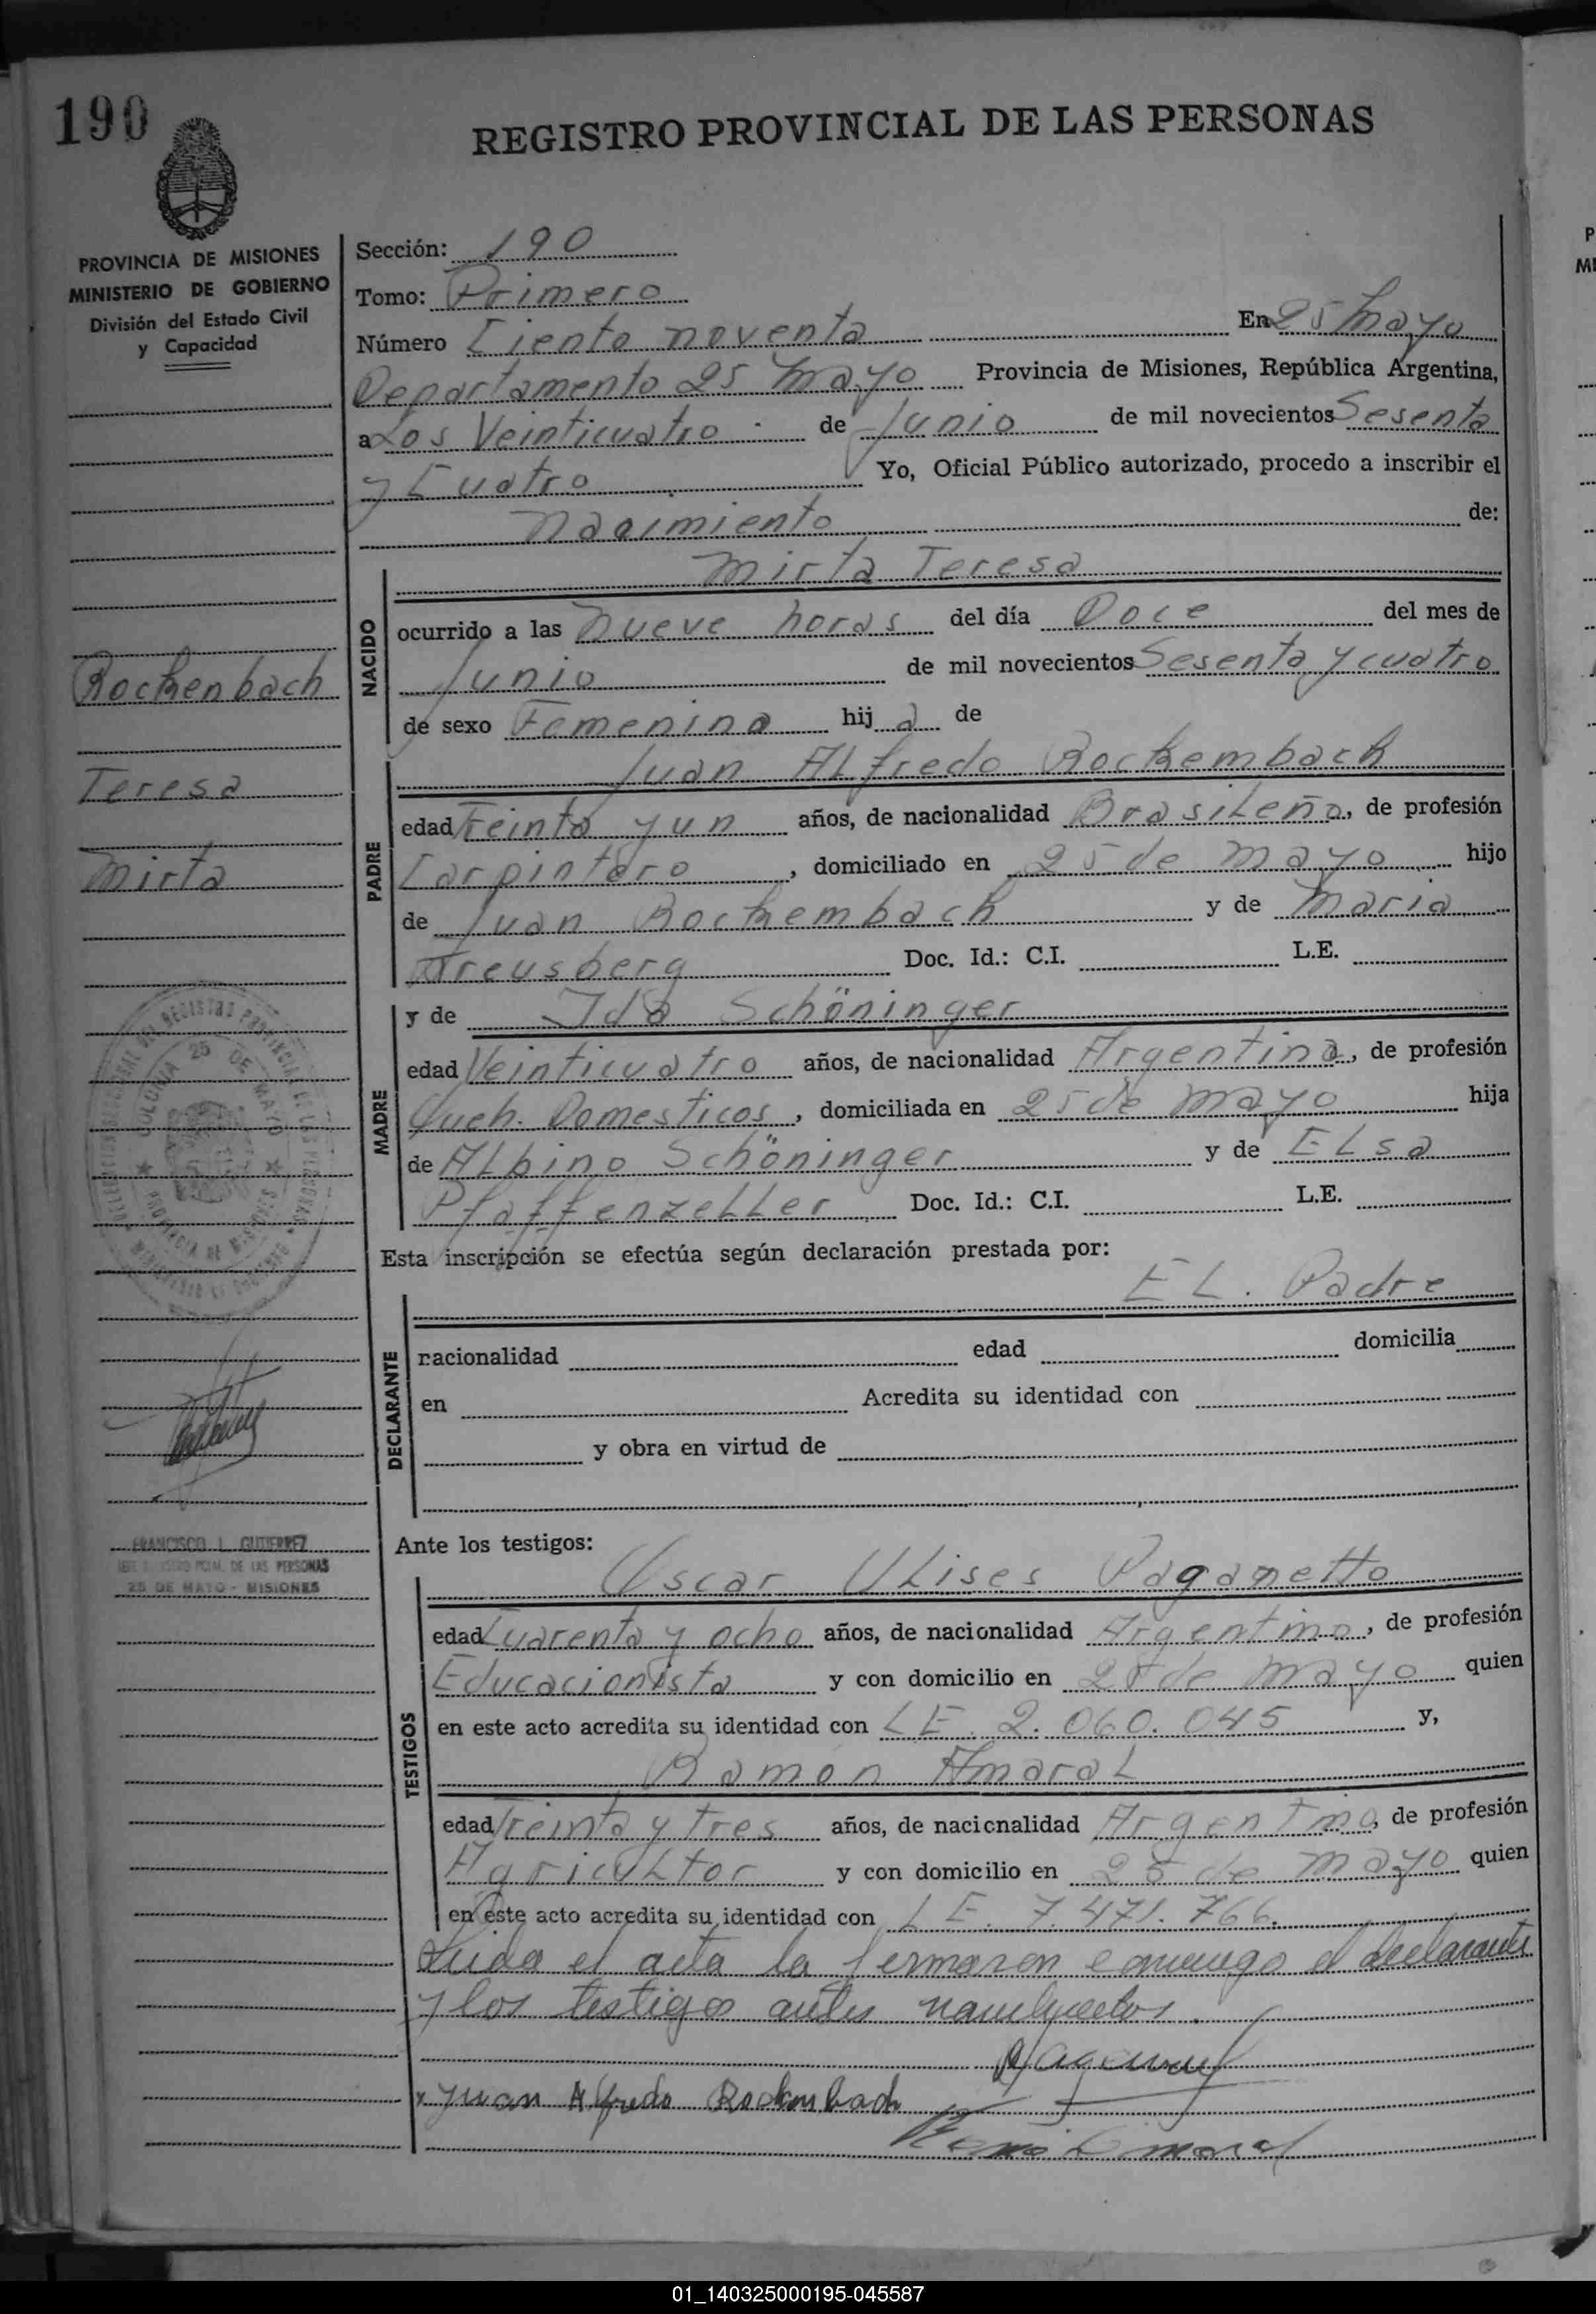 190
REGISTRO PROVINCIAL DE LAS PERSONAS
PROVINCIA DE MISIONES
MINISTERIO DE GOBIERNO
División del Estado Civil
y Capacidad
Rockenbach
Teresa
Mirta
COLONIA 25 DE MAYO
FRANCISCO L. GUTIERREZ
DE LAS PERSONAS
25 DE MAYO - MISIONES
Sección: 190
Tomo: Primero
Número Ciento noventa En 25 Mayo
Departamento 25 Mayo Provincia de Misiones, República Argentina,
a Los Veinticuatro de Junio de mil novecientos Sesenta
y Cuatro Yo, Oficial Público autorizado, procedo a inscribir el
Nacimiento de:
NACIDO
Mirta Teresa
ocurrido a las Nueve horas del día Doce del mes de
Junio de mil novecientos Sesenta y cuatro
de sexo Femenino hija de
PADRE
Juan Alfredo Rockembach
edad Treinta y un años, de nacionalidad Brasileña, de profesión
Carpintero, domiciliado en 25 de Mayo hijo
de Juan Rockembach y de Maria
Treusberg Doc. Id.: C.I. L.E.
MADRE
y de Ida Schöninger
edad Veinticuatro años, de nacionalidad Argentina, de profesión
Queh. Domesticos, domiciliada en 25 de Mayo hija
de Albino Schöninger y de Elsa
Pfaffenzeller Doc. Id.: C.I. L.E.
Esta inscripción se efectúa según declaración prestada por:
DECLARANTE
EL. Padre
nacionalidad edad domicilia
en Acredita su identidad con
y obra en virtud de
Ante los testigos:
TESTIGOS
Oscar Ulises Paganetto
edad Cuarenta y ocho años, de nacionalidad Argentino, de profesión
Educacionista y con domicilio en 25 de Mayo quien
en este acto acredita su identidad con LE. 2.060.045 y,
Ramón Amaral
edad Treinta y tres años, de nacionalidad Argentino, de profesión
Agricultor y con domicilio en 25 de Mayo quien
en este acto acredita su identidad con LE. 7.471.766.
Leida el acta la fermaron conmigo el declarante
y los testigos antes nombrados.
x Juan Alfredo Rockembach
01_140325000195-045587